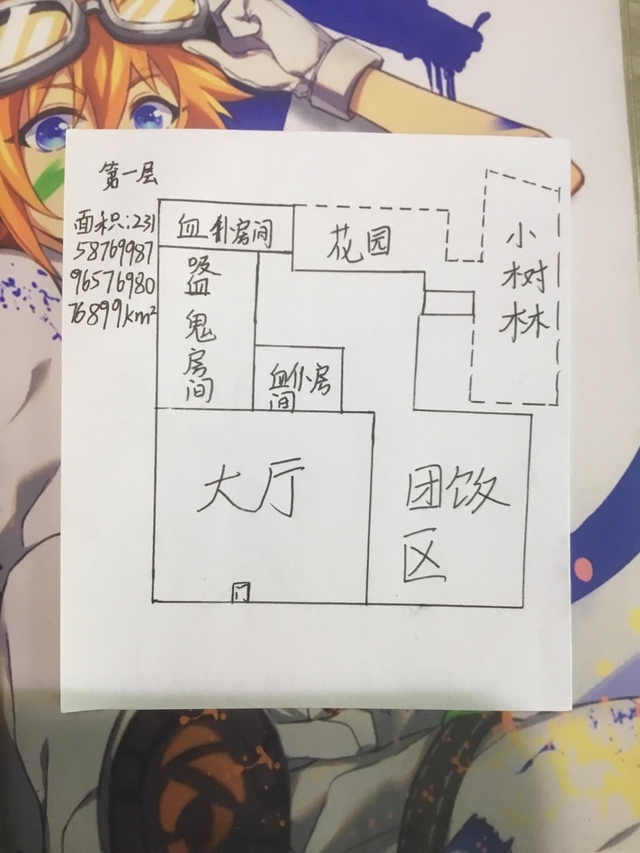 第一层
面积:231
58769987
96576980
76899km²
血仆房间
花园
小树林
吸血鬼房间
血仆房
间
大厅
团饭
区
门